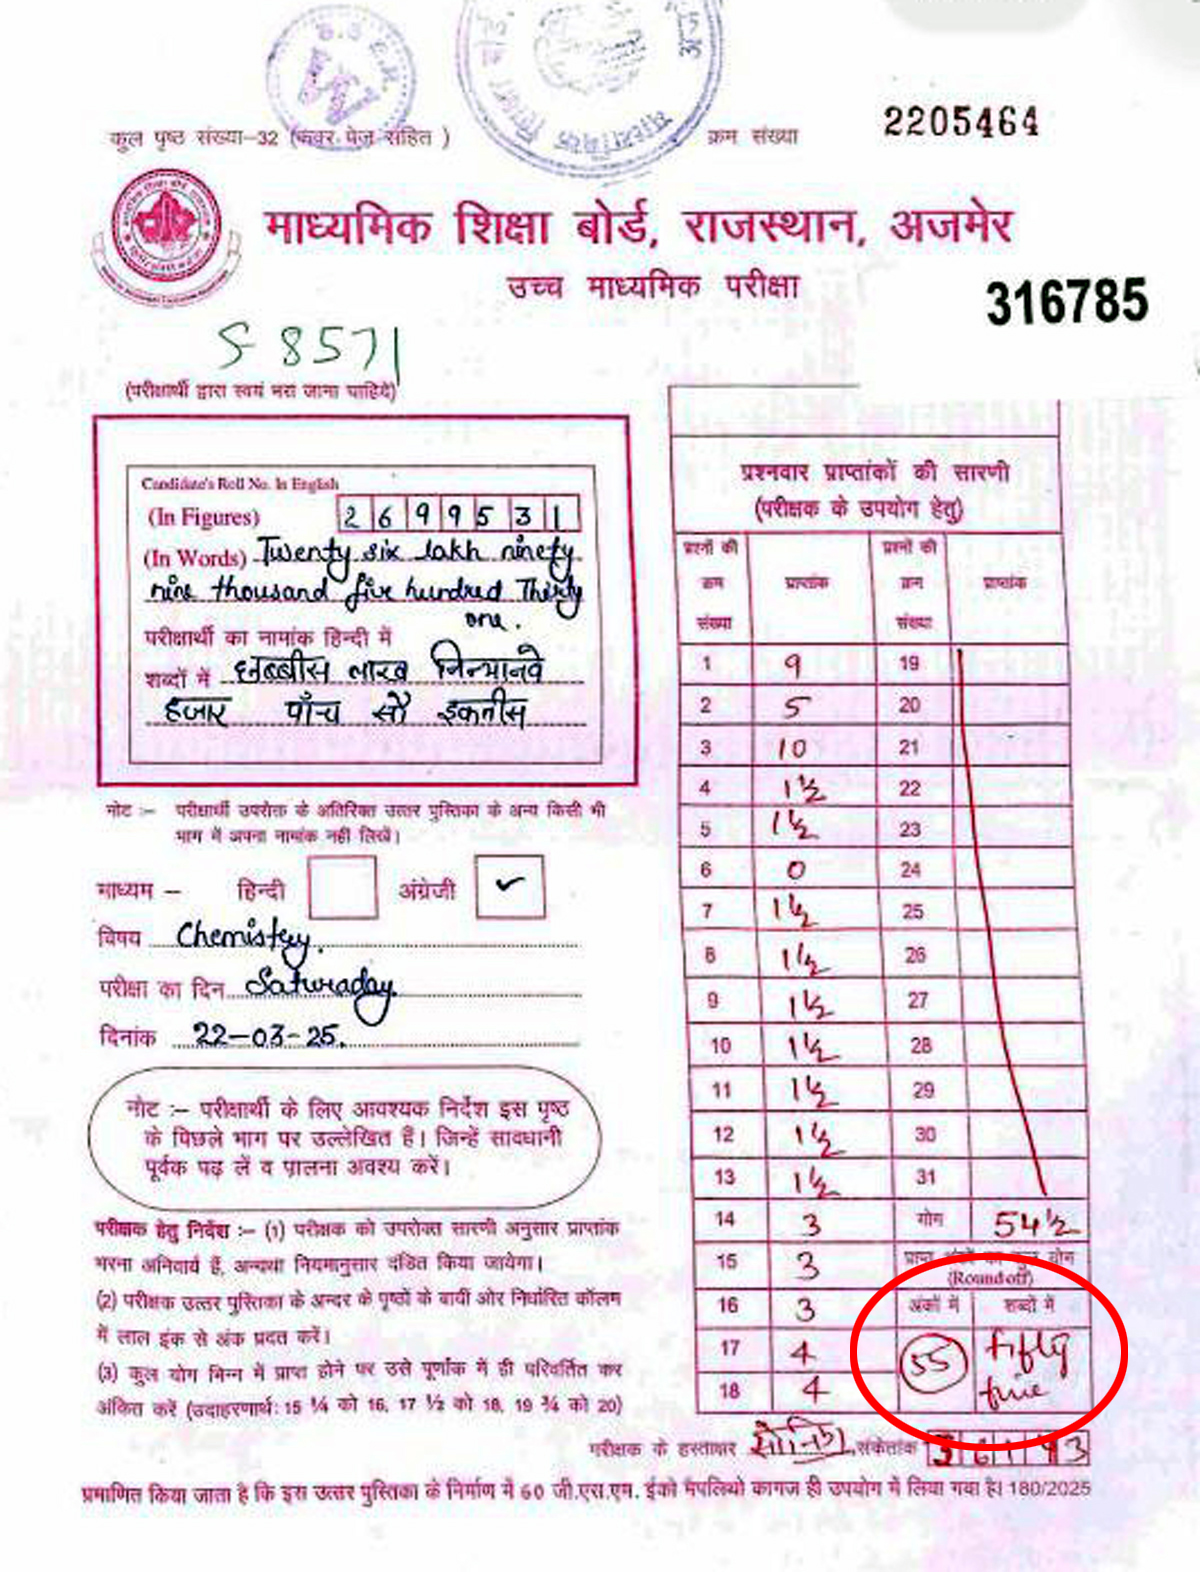 कुल पृष्ठ संख्या–32 (कवर पेज सहित )
क्रम संख्या
2205464
माध्यमिक शिक्षा बोर्ड, राजस्थान, अजमेर
उच्च माध्यमिक परीक्षा
316785
S-8571
(परीक्षार्थी द्वारा स्वयं भरा जाना चाहिये)
Candidate's Roll No. In English
(In Figures) 2 6 9 9 5 3 1
(In Words) Twenty six lakh ninety
nine thousand five hundred Thirty
one.
परीक्षार्थी का नामांक हिन्दी में
शब्दों में छब्बीस लाख निन्यानवे
हजार पाँच सौ इकतीस
नोट :– परीक्षार्थी उपरोक्त के अतिरिक्त उत्तर पुस्तिका के अन्य किसी भी
भाग में अपना नामांक नहीं लिखें।
माध्यम – हिन्दी अंग्रेजी ✓
विषय Chemistry.
परीक्षा का दिन Saturaday
दिनांक 22-03-25.
नोट :– परीक्षार्थी के लिए आवश्यक निर्देश इस पृष्ठ
के पिछले भाग पर उल्लेखित हैं। जिन्हें सावधानी
पूर्वक पढ़ लें व पालना अवश्य करें।
परीक्षक हेतु निर्देश :– (1) परीक्षक को उपरोक्त सारणी अनुसार प्राप्तांक
भरना अनिवार्य हैं, अन्यथा नियमानुसार दंडित किया जायेगा।
(2) परीक्षक उत्तर पुस्तिका के अन्दर के पृष्ठों के बायीं ओर निर्धारित कॉलम
में लाल इंक से अंक प्रदत करें।
(3) कुल योग भिन्न में प्राप्त होने पर उसे पूर्णांक में ही परिवर्तित कर
अंकित करें (उदाहरणार्थ: 15 ¼ को 16, 17 ½ को 18, 19 ¾ को 20)
प्रश्नवार प्राप्तांकों की सारणी
(परीक्षक के उपयोग हेतु)
प्रश्नों की प्रश्नों की
क्रम प्राप्तांक क्रम प्राप्तांक
संख्या संख्या
1 9 19
2 5 20
3 10 21
4 1½ 22
5 1½ 23
6 0 24
7 1½ 25
8 1½ 26
9 1½ 27
10 1½ 28
11 1½ 29
12 1½ 30
13 1½ 31
14 3 योग 54½
15 3 प्राप्त अंकों का कुल योग
(Round off)
16 3 अंकों में शब्दों में
17 4 55 fifty
18 4 five
परीक्षक के हस्ताक्षर संकेतांक
प्रमाणित किया जाता है कि इस उत्तर पुस्तिका के निर्माण में 60 जी.एस.एम. ईको मैपलिथो कागज ही उपयोग में लिया गया है। 180/2025